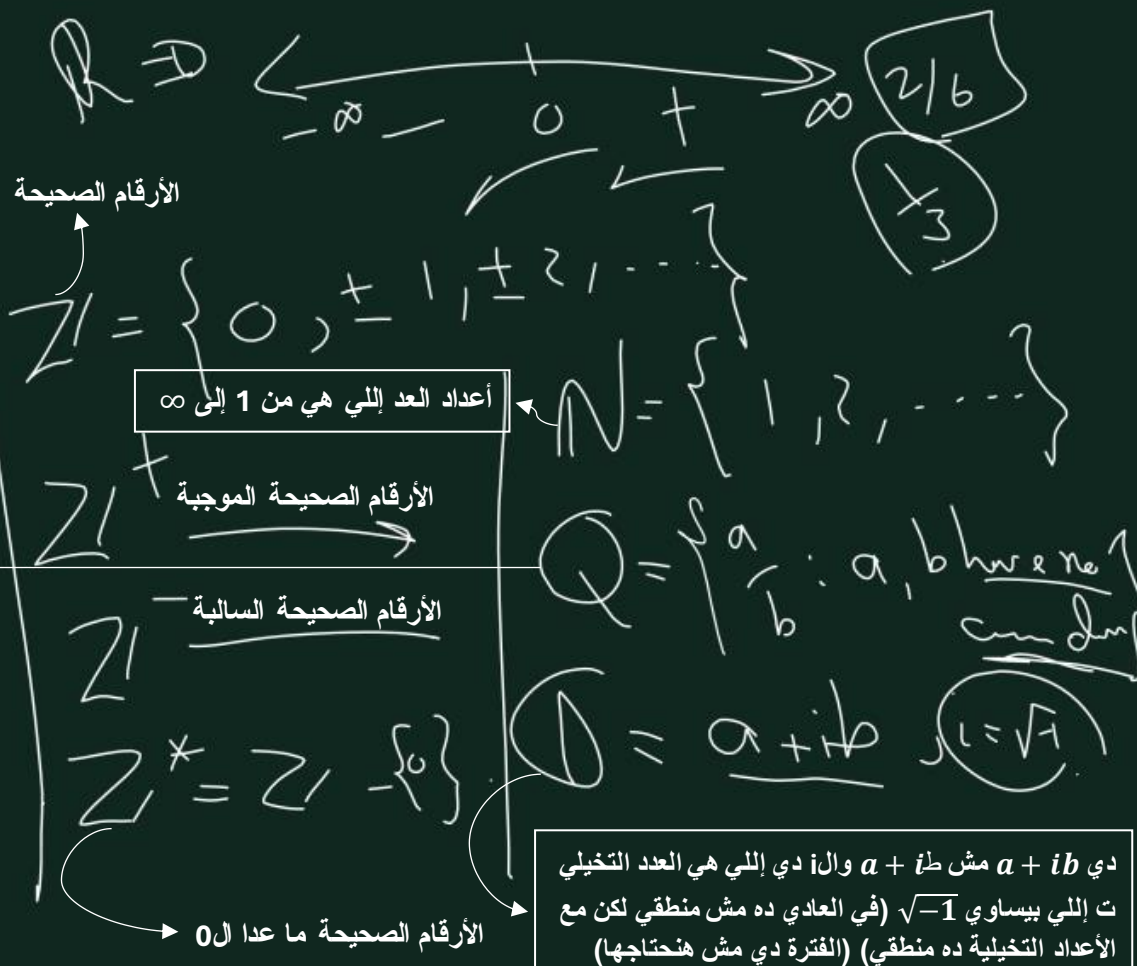 R ⇒ -∞ — 0 + ∞ 2/6
1/3
الأرقام الصحيحة
Z = {0, ±1, ±2, ....}
أعداد العد إللي هي من 1 إلى ∞
N = {1, 2, ....}
Z⁺ الأرقام الصحيحة الموجبة
Q = {a/b : a, b have no
Z⁻ الأرقام الصحيحة السالبة
Z* = Z - {0}
= a + ib, i = √-1
الأرقام الصحيحة ما عدا ال0
دي a + ib مش a + iط وال i دي إللي هي العدد التخيلي
ت إللي بيساوي √−1 (في العادي ده مش منطقي لكن مع
الأعداد التخيلية ده منطقي) (الفترة دي مش هنحتاجها)